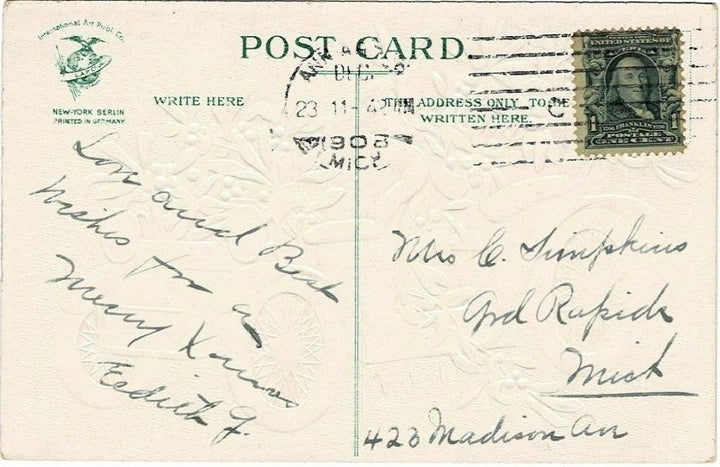 International Art Publ. Co.
NEW-YORK BERLIN
PRINTED IN GERMANY
POST CARD.
WRITE HERE
THE ADDRESS ONLY TO BE
WRITTEN HERE.
ANN ARBOR
DEC
23 11-
1908
MICH
C
UNITED STATES OF
1 FRANKLIN 1
POSTAGE
ONE CENT
and Best
Wishes for a
Merry Xmas
Eadith J.
Mrs C. Simpkins
Grd Rapids
Mich
423 Madison Av